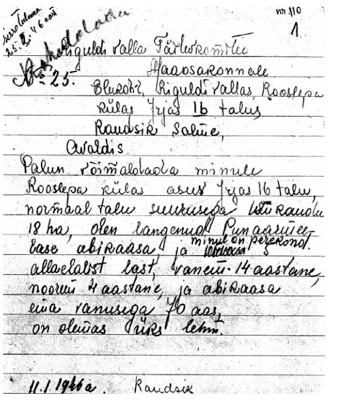 nr. 110
1
25. 2. 46
Riguldi Valla Täitevkomitee
Maaosakonnale
№ 25.
Elukoht, Riguldi vallas, Rooslepa
külas Jrjas 16 talus
Randsik Salme,
Avaldis
Palun võimaldada minule
Rooslepa külas asuv Jrjas 16 talu,
normaal talu suurusega
18 ha, olen langenud Punaarmee
lase abikaasa ja minul on perekond
allaealist last, vanem 14 aastane,
noorem 4 aastane, ja abikaasa
ema vanusega 76 aas,
on olemas üks lehm.
11.1.1946a. Randsik